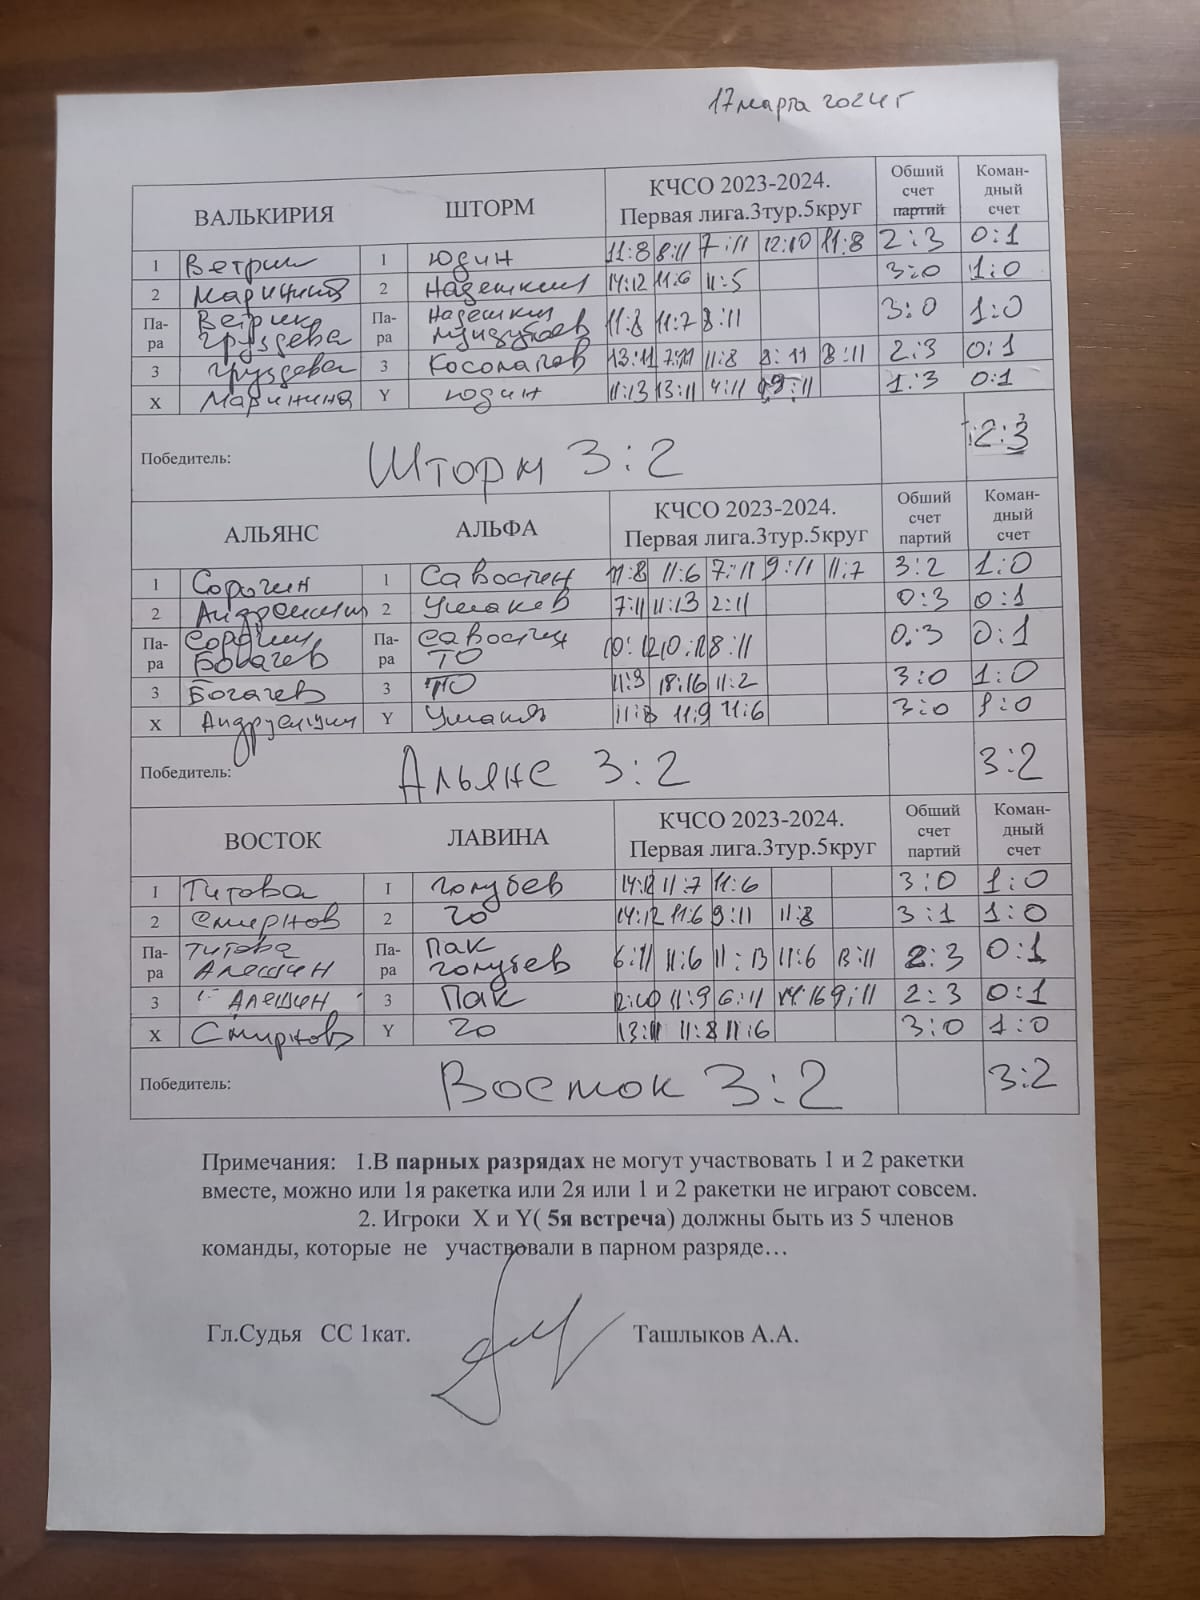 17 марта 2024 г
ВАЛЬКИРИЯ ШТОРМ КЧСО 2023-2024. Первая лига.3тур.5круг Обший счет партий Коман-дный счет
1 Ветрик 1 Юдин 11:8 8:11 7:11 12:10 11:8 2:3 0:1
2 2 Надешкин 14:12 11:6 11:5 3:0 1:0
Па-ра Ветрик Груздева Па-ра Надешкин 11:8 11:7 8:11 3:0 1:0
3 Груздева 3 Косолапов 13:11 7:11 11:8 8:11 8:11 2:3 0:1
X Маринина Y Юдин 11:13 13:11 4:11 9:11 1:3 0:1
Победитель: Шторм 3:2 2:3
АЛЬЯНС АЛЬФА КЧСО 2023-2024. Первая лига.3тур.5круг Обший счет партий Коман-дный счет
1 Сорочин 1 Савостин 11:8 11:6 7:11 9:11 11:7 3:2 1:0
2 Андрюшин 2 Ушаков 7:11 11:13 2:11 0:3 0:1
Па-ра Сорочин Богачев Па-ра Савостин ТО 10:12 10:12 8:11 0:3 0:1
3 Богачев 3 ТО 11:9 18:16 11:2 3:0 1:0
X Y 11:8 11:9 11:6 3:0 1:0
Победитель: Альянс 3:2 3:2
ВОСТОК ЛАВИНА КЧСО 2023-2024. Первая лига.3тур.5круг Обший счет партий Коман-дный счет
1 Титова 1 Голубев 14:12 11:7 11:6 3:0 1:0
2 Смирнов 2 Го 14:12 11:6 9:11 11:8 3:1 1:0
Па-ра Титова Алешин Па-ра Пак Голубев 6:11 11:6 11:13 11:6 8:11 2:3 0:1
3 Алешин 3 Пак 12:10 11:9 6:11 14:16 9:11 2:3 0:1
X Смирнов Y Го 13:11 11:8 11:6 3:0 1:0
Победитель: Восток 3:2 3:2
Примечания: 1.В парных разрядах не могут участвовать 1 и 2 ракетки
вместе, можно или 1я ракетка или 2я или 1 и 2 ракетки не играют совсем.
2. Игроки X и Y( 5я встреча) должны быть из 5 членов
команды, которые не участвовали в парном разряде…
Гл.Судья СС 1кат. Ташлыков А.А.